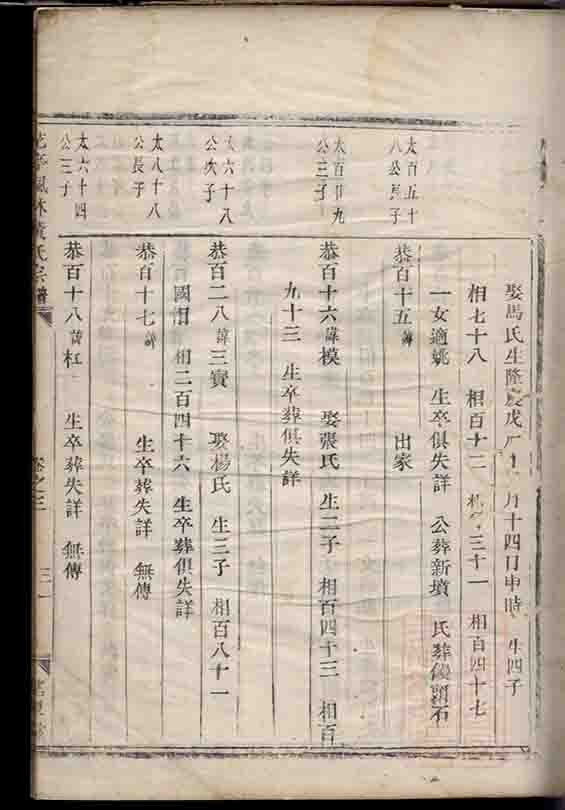 娶馬氏生隆慶戊 月十四日申時 生四子
相七十八 相百十二 三十一 相百四十七
一女適姚 生卒俱失詳 公葬新墳 氏葬饅頭石
太百五十
八公長子
恭百十五諱 出家
太百廿九
公三子
恭百十六諱模 娶張氏 生二子 相百四十三 相百
九十三 生卒葬俱失詳
太六十八
公次子
恭百二八諱三實 娶楊氏 生三子 相百八十一
國 相二百四十六 生卒葬俱失詳
太八十八
公長子
恭百十七諱 生卒葬失詳 無傳
太六十四
公三子
恭百十八諱杠 生卒葬失詳 無傳
黃氏宗譜 卷之三